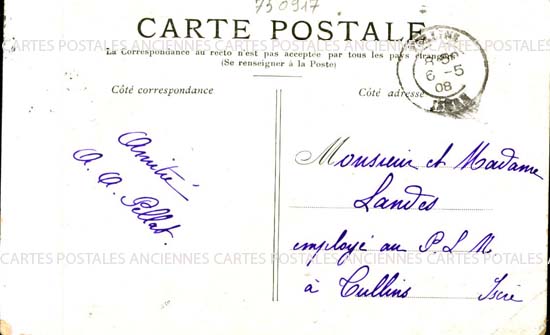 750917
CARTE POSTALE
La Correspondance au recto n'est pas acceptée par tous les pays étrangers
(Se renseigner à la Poste)
Côté correspondance
Côté adresse
6 -5
08
Amitié
A. A. Pellat.
Monsieur et Madame
Landes
employé au P L M
à Tullins Isère
CARTES POSTALES ANCIENNES CARTES POSTALES ANCIENNES CARTES POSTALES
CARTES POSTALES ANCIENNES CARTES POSTALES ANCIENNES CARTES POSTALES